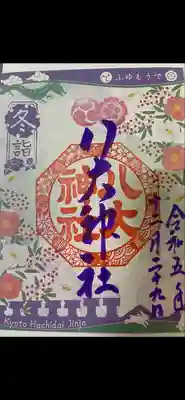 ふゆもうで
冬詣
八大神社
八大神社
令和五年
十二月二十九日
Kyoto Hachidai Jinja